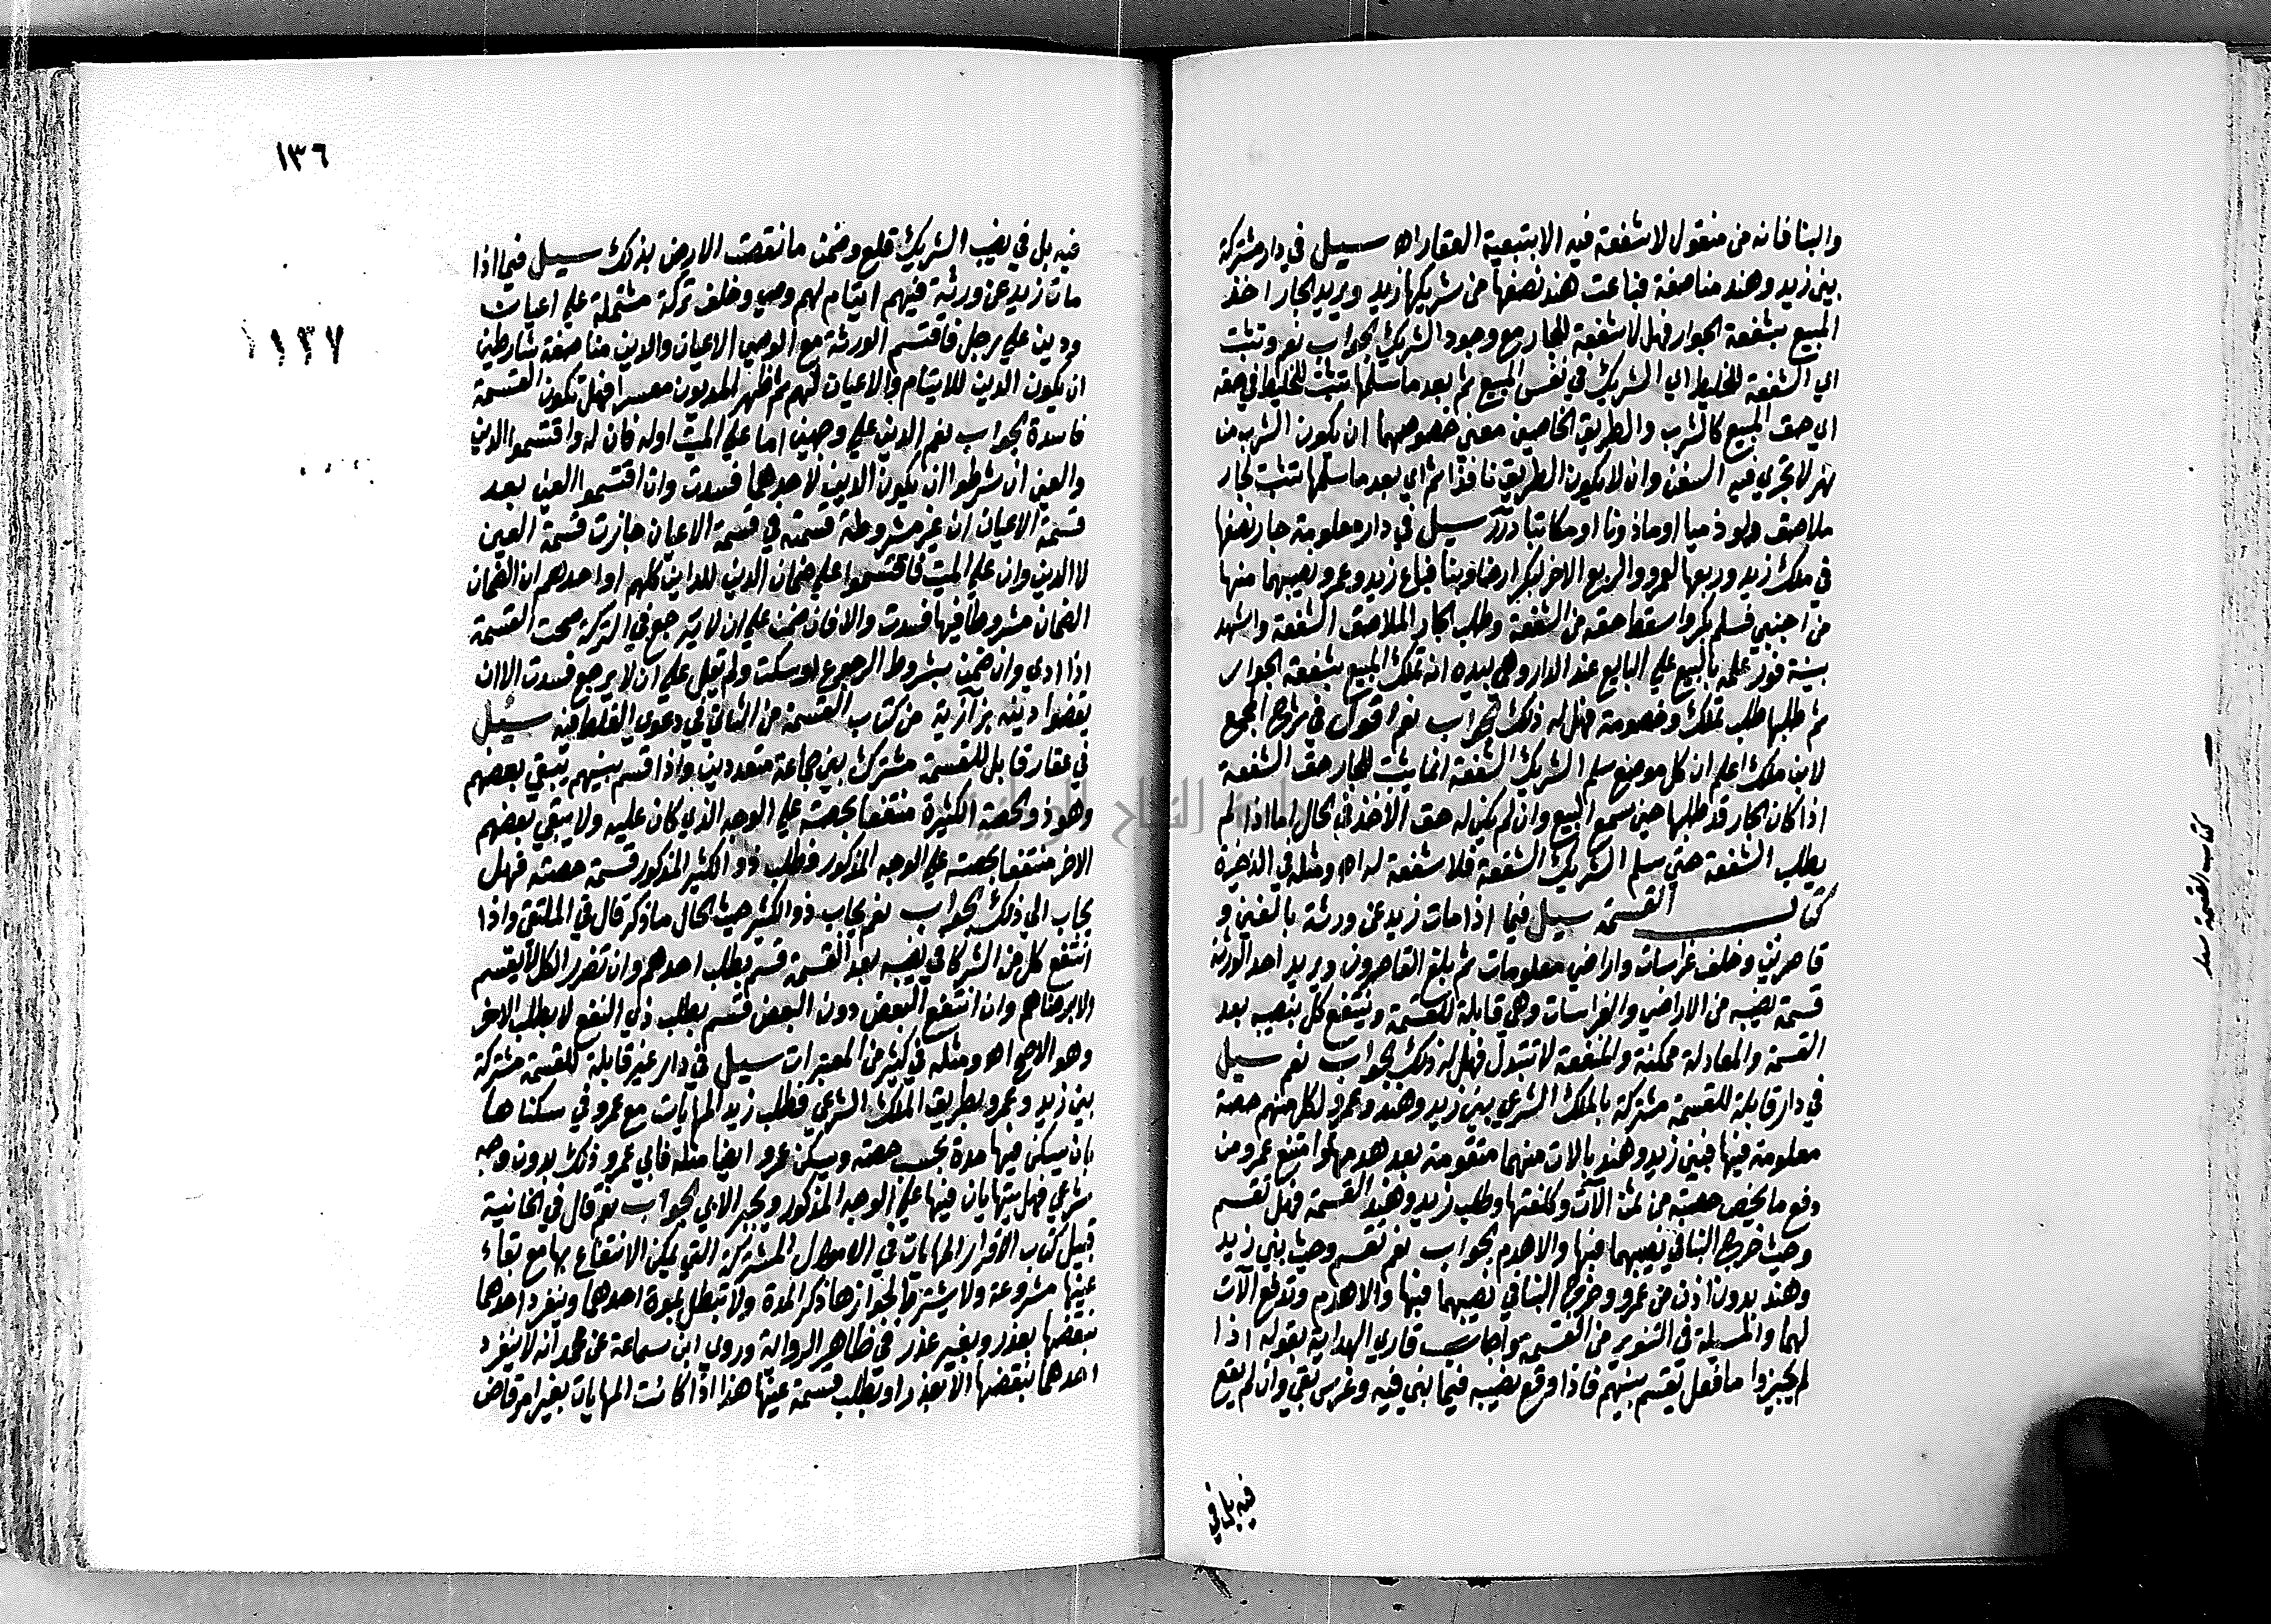 والبنا فانه من منقول لا شفعة فيه الا بتبعية العقار اه سيل في دار مشتركة
بين زيد وهند مناصفة فباعت هند نصفها من شريكها زيد ويريد الجار اخذ
المبيع بشفعة الجوار فهل لا شفعة للجار مع وجود الشريك الجواب نعم وتثبت
اي الشفعة للخليط اي الشريك في نفس المبيع ثم بعد ما سلمها تثبت للخليط في حقه
اي حق المبيع كالشرب والطريق الخاصين معني خصوصهما ان يكون الشرب من
نهر لا تجري فيه السفن وان لا يكون الطريق نافذا ثم اي بعد ما سلمها تثبت لجار
ملاصق ولو ذميا او ماذونا او مكاتبا درر سيل في دار معلومة جار نصفها
في ملك زيد وربعها لعمرو والربع الاخر لبكر ارضا وبنا فباع زيد وعمرو نصيبهما منها
من اجنبي فسلم بكر واسقط حقه من الشفعة وطلب الجار الملاصق الشفعة واشهد
بينة فور علمه بالبيع علي البايع عند الدار وهي بيده انه تملك المبيع بشفعة الجوار
ثم طلبها طلب تملك وخصومة فهل له ذلك الجواب نعم اقول في شرح المجمع
لابن ملك اعلم ان كل موضع سلم الشريك الشفعة انما يثبت للجار حق الشفعة
اذا كان الجار قد طلبها حين سمع البيع وان لم يكن له حق الاخذ في الحال اما اذا لم
يطلب الشفعة حتي سلم الشريك الشفعة فلا شفعة له اه ومثله في الذخيرة
كتاب القسمة سيل فيما اذا مات زيد عن ورثة بالغين و
قاصرين وخلف غراسات واراضي معلومات ثم بلغ القاصرون ويريد احد الورثة
قسمة نصيبه من الاراضي والغراسات وهي قابلة للقسمة وينتفع كل بنصيبه بعد
القسمة والمعادلة ممكنة والمنفعة لا تتبدل فهل له ذلك الجواب نعم سيل
في دار قابلة للقسمة مشتركة بالملك الشرعي بين زيد وهند وعمرو لكل منهم حصة
معلومة فيها فبني زيد وهند بالات منهما متقومة بعد هدمها وامتنع عمرو من
دفع ما يخص حصته من ثمن الآت وكلفتها وطلب زيد وهند القسمة فهل تقسم
وحيث خرج البنا في نصيبهما فبها والا هدم الجواب نعم تقسم وحيث بني زيد
وهند بدون اذن من عمرو وخرج البنا في نصيبهما فبها والا هدم وتدفع الآت
لهما والمسيلة في التنوير من القسمة واجاب قاري الهداية بقوله اذا
لم يجيزوا ما فعل يقسم بينهم فاذا وقع نصيبه فيما بني فيه وغرس بقي وان لم يقع
فيه بل في
كتاب القسمة
١٣٦
١٣٧
فيه بل في نصيب الشريك قلع وضمن ما نقصت الارض بذلك سيل فيما اذا
مات زيد عن ورثة فيهم ايتام لهم وصي وخلف تركة مشتملة علي اعيان
ودين علي رجل فاقتسم الورثة مع الوصي الاعيان والدين مناصفة شارطين
ان يكون الدين للايتام والاعيان لهم ثم ظهر المديون معسرا فهل تكون القسمة
فاسدة الجواب نعم الدين علي وجهين اما علي الميت اوله فان له واقتسموا الدين
والعين ان شرطوا ان يكون الدين لاحدهما فسدت وان اقتسموا العين بعد
قسمة الاعيان ان غير مشروطة قسمته في قسمة الاعيان جازت قسمة العين
لا الدين وان علي الميت فاقتسموا علي ضمان الدين للداين كلهم او احدهم ان الضمان
الضمان مشروطا فيها فسدت والا فان ضمن علي ان لا يرجع في التركة صحت القسمة
اذا ادي وان ضمن بشروط الرجوع او سكت ولم يقل علي ان لا يرجع فسدت الا ان
يقضوا دينه بزازية من كتاب القسمة من الثاني في دعوي الغلط فيه سيل
في عقار قابل للقسمة مشترك بين جماعة متعددين واذا قسم بينهم يبقي بعضهم
وهو ذو الحصة الكثيرة منتفعا بحصته علي الوجه الذي كان عليه ولا يبقي بعضهم
الاخر منتفعا بحصته علي الوجه المذكور فطلب ذو الكثير المذكور قسمة حصته فهل
يجاب الي ذلك الجواب نعم يجاب ذو الكثير حيث الحال ما ذكر قال في الملتقي واذا
انتفع كل من الشركا في نصيبه بعد القسمة قسم بطلب احدهم وان تضرر الكل لا يقسم
الا برضاهم وان انتفع البعض دون البعض قسم بطلب ذي النفع لا بطلب الاخر
وهو الاصح اه ومثله في كثير من المعتبرات سيل في دار غير قابلة للقسمة مشتركة
بين زيد وعمرو بطريق الملك الشرعي فطلب زيد المهايات مع عمرو في سكناها
بان يسكن فيها مدة بحسب حصته ويسكن عمرو ايضا مثله فابي عمرو ذلك بدون وجه
شرعي فهل يتهايان فيها علي الوجه المذكور ويجبر الابي الجواب نعم قال في الخانية
قبيل كتاب الاقرار المهايات في الاموال المشتركة التي يمكن الانتفاع بها مع بقاء
عينها مشروعة ولا يشترط لجوازها ذكر المدة ولا تبطل بموت احدهما وينفرد احدهما
بنقضها بعذر وبغير عذر في ظاهر الرواية وروي ابن سماعة عن محمد انه لا ينفرد
احدهما بنقضها الا بعذر او بطلب قسمة عينها هذا اذا كانت المهايات بغير امر قاض